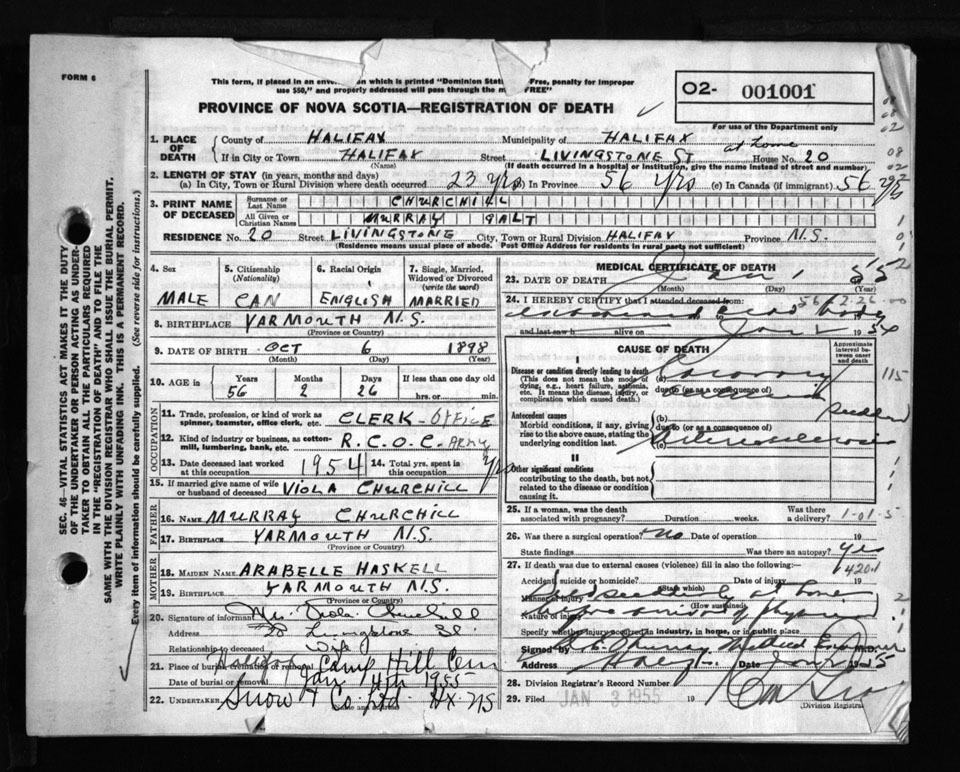 FORM 6
This form, if placed in an which is printed "Dominion Free, penalty for improper
use $50," and properly addressed will pass through the FREE"
PROVINCE OF NOVA SCOTIA—REGISTRATION OF DEATH
02- 001001
For use of the Department only
1. PLACE OF DEATH
County of HALIFAX Municipality of HALIFAX
at home
If in City or Town HALIFAX Street LIVINGSTONE ST House No. 20
(Name) (If death occurred in a hospital or institution, give the name instead of street and number)
2. LENGTH OF STAY (in years, months and days)
(a) In City, Town or Rural Division where death occurred 23 yrs In Province 56 yrs (c) In Canada (if immigrant) 56 yrs
3. PRINT NAME OF DECEASED
Surname or Last Name CHURCHILL
All Given or Christian Names MURRAY GALT
RESIDENCE No. 20 Street LIVINGSTONE City, Town or Rural Division HALIFAX Province N.S.
(Residence means usual place of abode. Post Office Address for residents in rural parts not sufficient)
4. Sex MALE
5. Citizenship (Nationality) CAN
6. Racial Origin ENGLISH
7. Single, Married, Widowed or Divorced (write the word) MARRIED
8. BIRTHPLACE YARMOUTH N.S.
(Province or Country)
9. DATE OF BIRTH OCT 6 1898
(Month) (Day) (Year)
10. AGE in Years Months Days If less than one day old
56 2 26 hrs. or min.
OCCUPATION
11. Trade, profession, or kind of work as spinner, teamster, office clerk, etc. CLERK - OFFICE
12. Kind of industry or business, as cotton-mill, lumbering, bank, etc. R.C.O.C. Army
13. Date deceased last worked at this occupation 1954 14. Total yrs. spent in this occupation yrs
15. If married give name of wife or husband of deceased VIOLA CHURCHILL
FATHER
16. NAME MURRAY CHURCHILL
17. BIRTHPLACE YARMOUTH N.S.
(Province or Country)
MOTHER
18. MAIDEN NAME ARABELLE HASKELL
19. BIRTHPLACE YARMOUTH N.S.
(Province or Country)
20. Signature of informant Mrs. Viola Churchill
Address 20 Livingstone St.
Relationship to deceased Wife
21. Place of burial, cremation or removal Camp Hill Cem
Date of burial or removal Jan 4th 1955
22. UNDERTAKER Snow & Co Ltd Hx NS
MEDICAL CERTIFICATE OF DEATH
23. DATE OF DEATH Jan 1 55
(Month) (Day) (Year)
24. I HEREBY CERTIFY that I attended deceased from:
dead body
and last saw h alive on Jan 1 19
CAUSE OF DEATH
Approximate interval between onset and death
I
Disease or condition directly leading to death
(This does not mean the mode of dying, e.g., heart failure, asthenia, etc. It means the disease, injury, or complication which caused death.)
(a) Coronary
due to (or as a consequence of)
sudden
Antecedent causes
Morbid conditions, if any, giving rise to the above cause, stating the underlying condition last.
(b)
due to (or as a consequence of)
(c)
II
Other significant conditions
contributing to the death, but not related to the disease or condition causing it.
25. If a woman, was the death associated with pregnancy? Duration weeks. Was there a delivery?
26. Was there a surgical operation? no Date of operation 19
State findings Was there an autopsy? yes
27. If death was due to external causes (violence) fill in also the following:
420.1
Accident, suicide or homicide? (State which) Date of injury 19
Manner of injury (How sustained)
Nature of injury
Specify whether injury occurred in industry, in home, or in public place
Signed by Medical Examiner
Address Date Jan 19
28. Division Registrar's Record Number
29. Filed JAN 3 1955 19
(Division Registrar)
SEC. 46—VITAL STATISTICS ACT MAKES IT THE DUTY
OF THE UNDERTAKER OR PERSON ACTING AS UNDER-
TAKER TO OBTAIN ALL THE PARTICULARS REQUIRED
IN THE "REGISTRATION OF DEATH" AND TO FILE THE
SAME WITH THE DIVISION REGISTRAR WHO SHALL ISSUE THE BURIAL PERMIT.
WRITE PLAINLY WITH UNFADING INK. THIS IS A PERMANENT RECORD.
Every item of information should be carefully supplied. (See reverse side for instructions.)